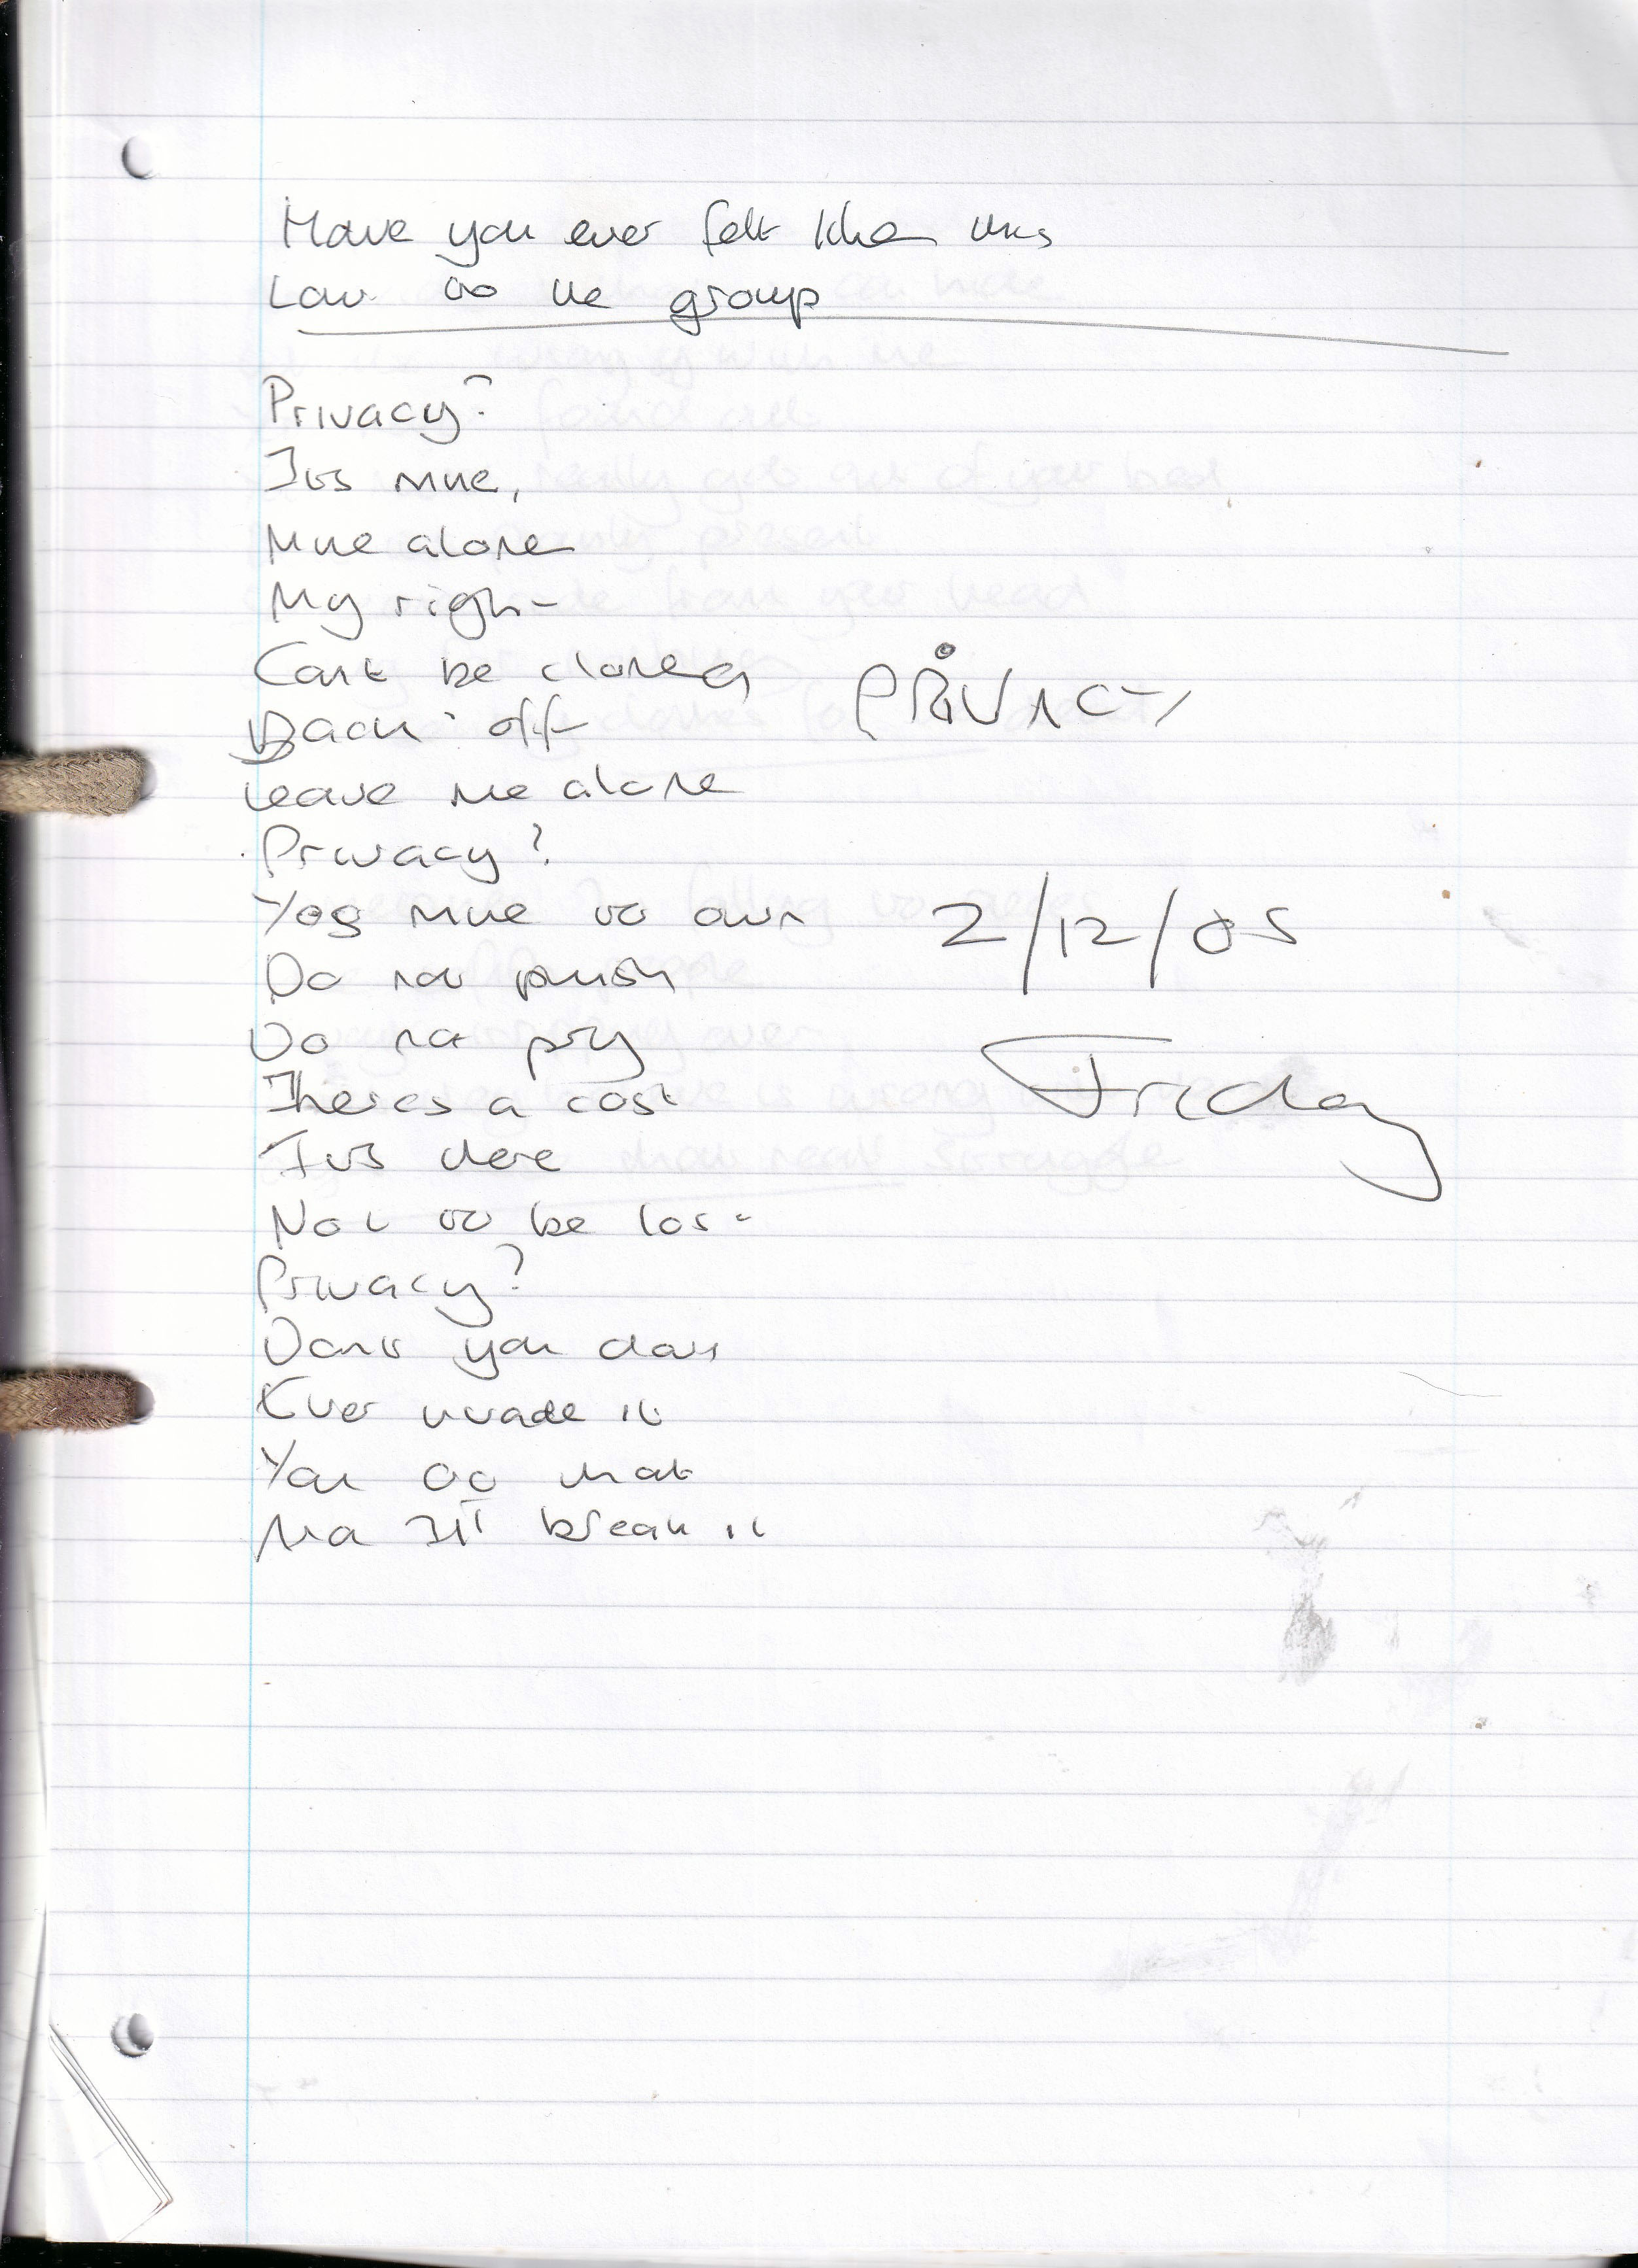 Have you ever felt like this
Low to the group
Privacy?
Its mine,
Mine alone
My right
Cant be cloned
PRIVACY
Back off
Leave me alone
Privacy?
Yes mine to own
2/12/05
Do not push
Do not pry
Friday
Theres a cost
Its there
Not to be lost
Privacy?
Dont you dare
Ever invade it
You do that
Il break it